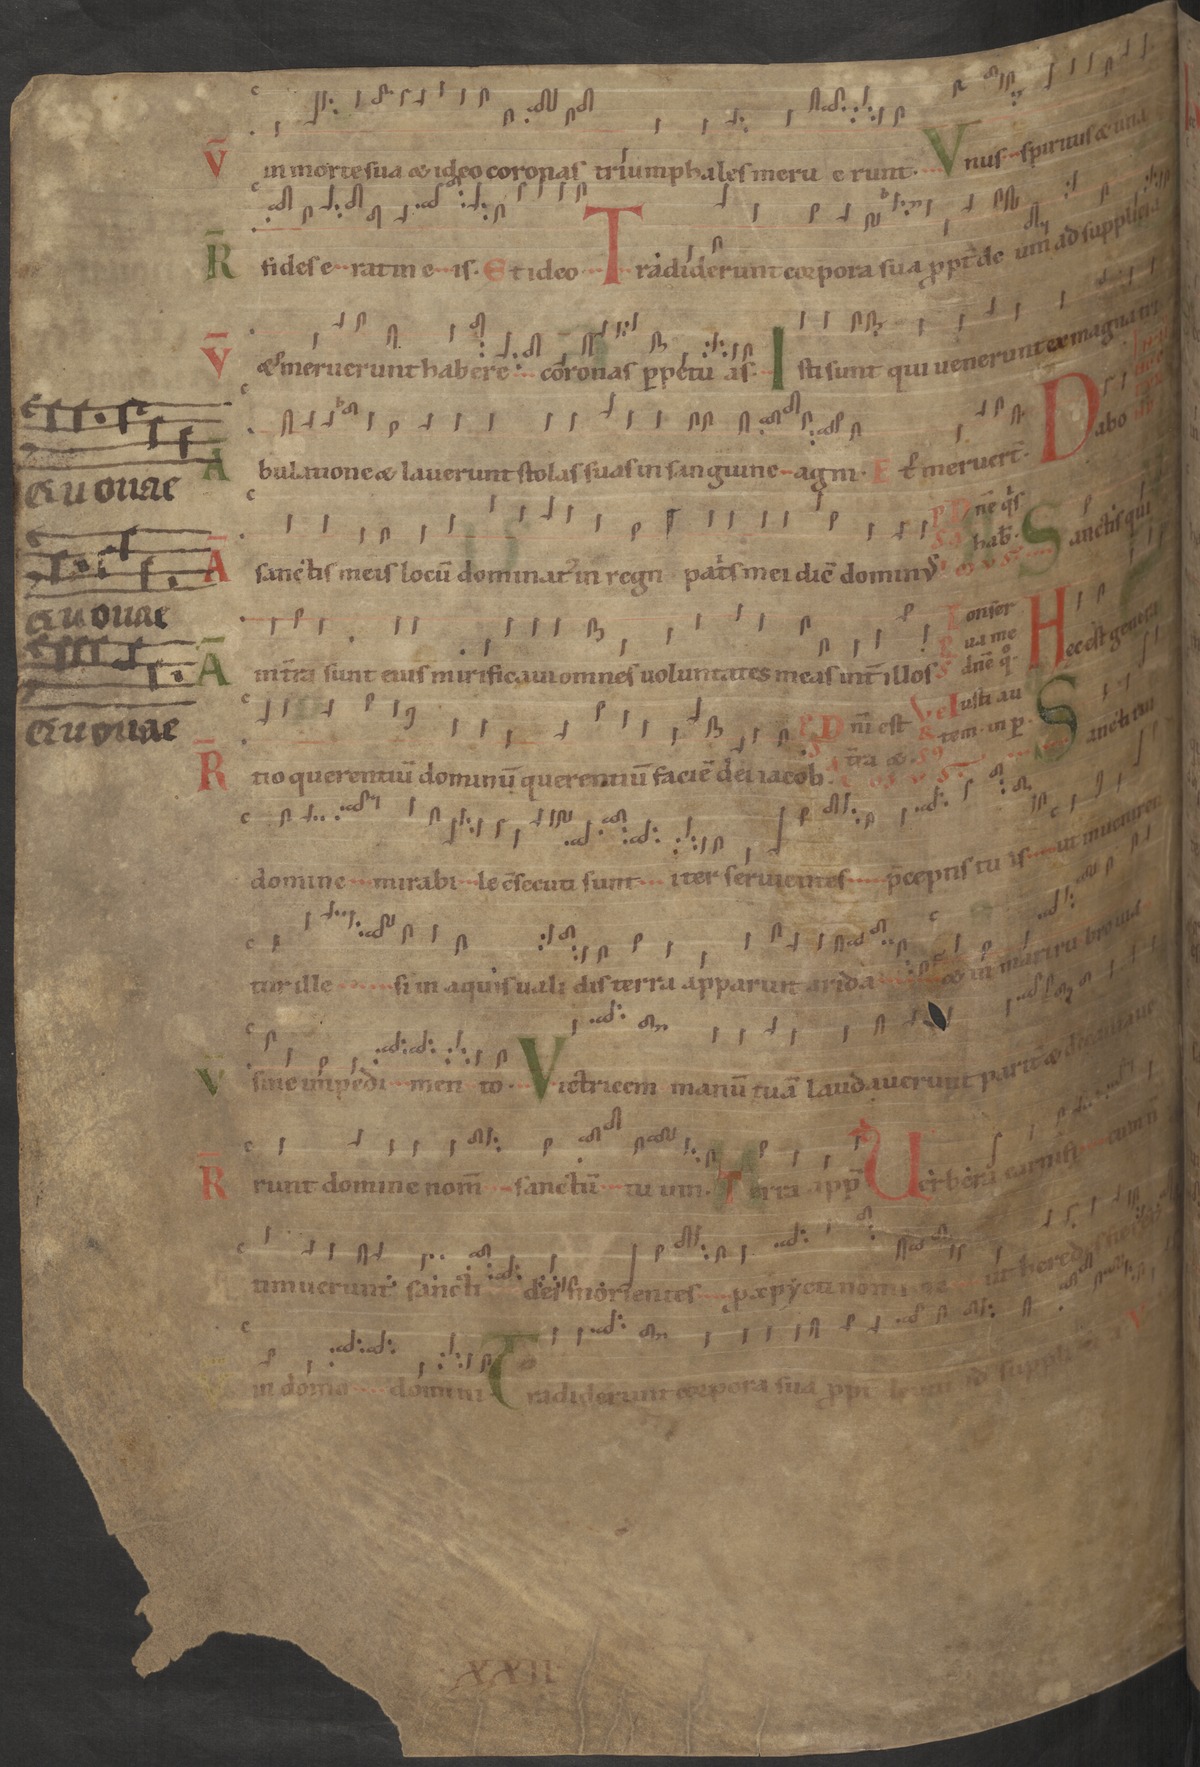 V̄ in morte sua & ideo coronas triumphales meru erunt. Vnus spiritus & una
R̄ fides e ratin e is. Et ideo Tradiderunt corpora sua ꝓpt̄ de um ad supplicia
V̄ & meruerunt habere coronas ꝑpetu as. Isti sunt qui uenerunt ex magna tri
bulatione & lauerunt stolas suas in sanguine agni. Et meruert̄.
Ā Dabo
euouae
Ā sanctis meis locū dominat in regn patris mei dic̄ dominꝰ
P Dn̄e qͥs
hab̄.
Sanctis qui
euouae
Ā in t̄ra sunt eius mirificaui omnes uoluntates meas int̄ illos
Conser
ua me
dn̄e qͦ.
Hec est genera
euouae
R̄ tio querentiū dominū querentiū faciē dei iacob.
P Dn̄i est
t̄ra &
V Iusti au
tem in ꝑ
Sancti tui
domine mirabi le c̄secuti sunt iter seruientes p̄ceptis tu is ut inueniren
tur ille si in aquis uali dis terra apparuit arida & in mari ru bro uia
V̄ sine inpedi men to. Victricem manū tuā laudauerunt parit̄ & decantaue
R̄ runt domine nom̄ sanctū tu um. Terra app̄ Uerbera carnifi cum n̄
timuerunt sancti dei morientes pro xp̄i nomi ne ut heredes fierent
in domo domini Tradiderunt corpora sua ꝓpt̄ deum ad suppli
XXII